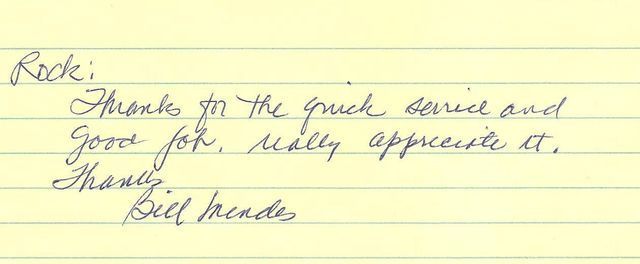 Rock:
Thanks for the quick service and
good job. really appreciate it.
Thanks
Bill Mendes